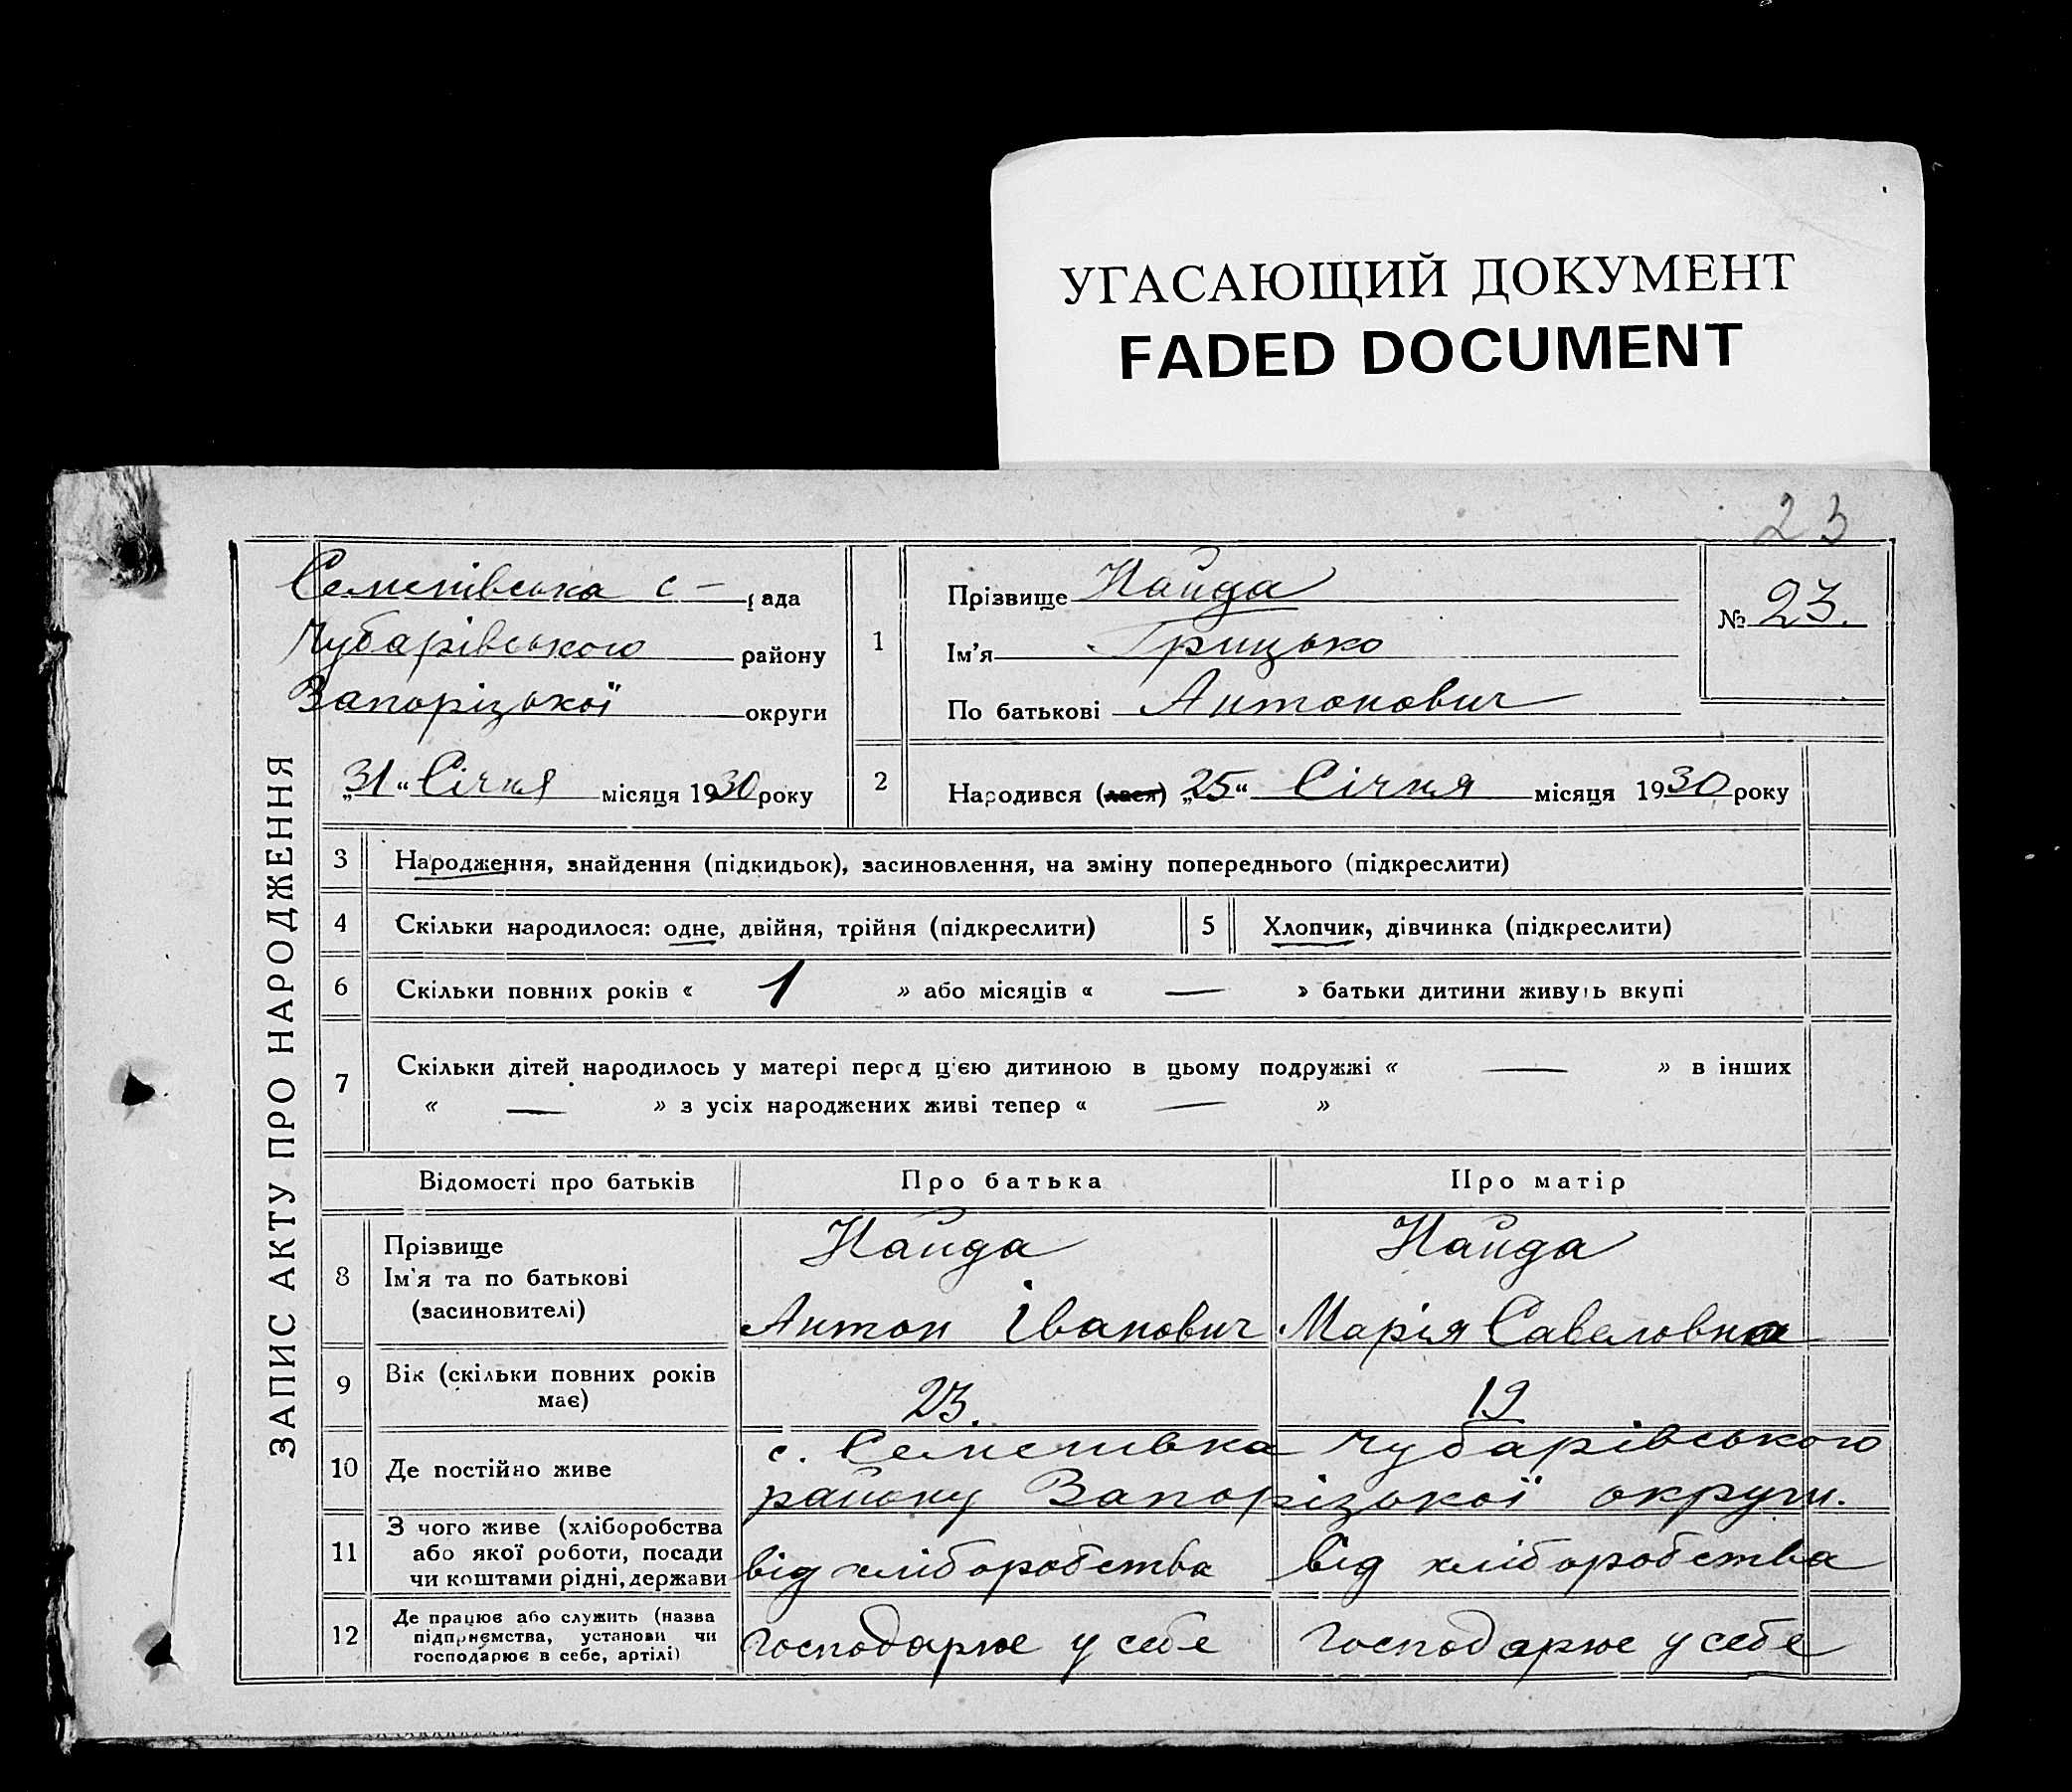 УГАСАЮЩИЙ ДОКУМЕНТ
FADED DOCUMENT
23
ЗАПИС АКТУ ПРО НАРОДЖЕННЯ
Семенівська с – рада
Чубарівського району
Запоріцької округи
„31“ Січня місяця 1930 року
1
Прізвище Найда
Ім'я Грицько
По батькові Антонович
№ 23.
2 Народився (лася) „25“ Січня місяця 1930 року
3 Народження, знайдення (підкидьок), засиновлення, на зміну попереднього (підкреслити)
4 Скільки народилося: одне, двійня, трійня (підкреслити) 5 Хлопчик, дівчинка (підкреслити)
6 Скільки повних років « 1 » або місяців « — » батьки дитини живуть вкупі
7 Скільки дітей народилось у матері перед цією дитиною в цьому подружжі « — » в інших
« — » з усіх народжених живі тепер « — »
Відомості про батьків Про батька Про матір
8 Прізвище
Ім'я та по батькові
(засиновителі)
Найда
Антон Іванович
Найда
Марія Савеловна
9 Вік (скільки повних років
має)
23. 19
10 Де постійно живе
с. Семенівка Чубарівського
району Запоріцької округи.
11 З чого живе (хліборобства
або якої роботи, посади
чи коштами рідні, держави
від хліборобства від хліборобства
12 Де працює або служить (назва
підприємства, установи чи
господарює в себе, артілі)
господарює у себе господарює у себе